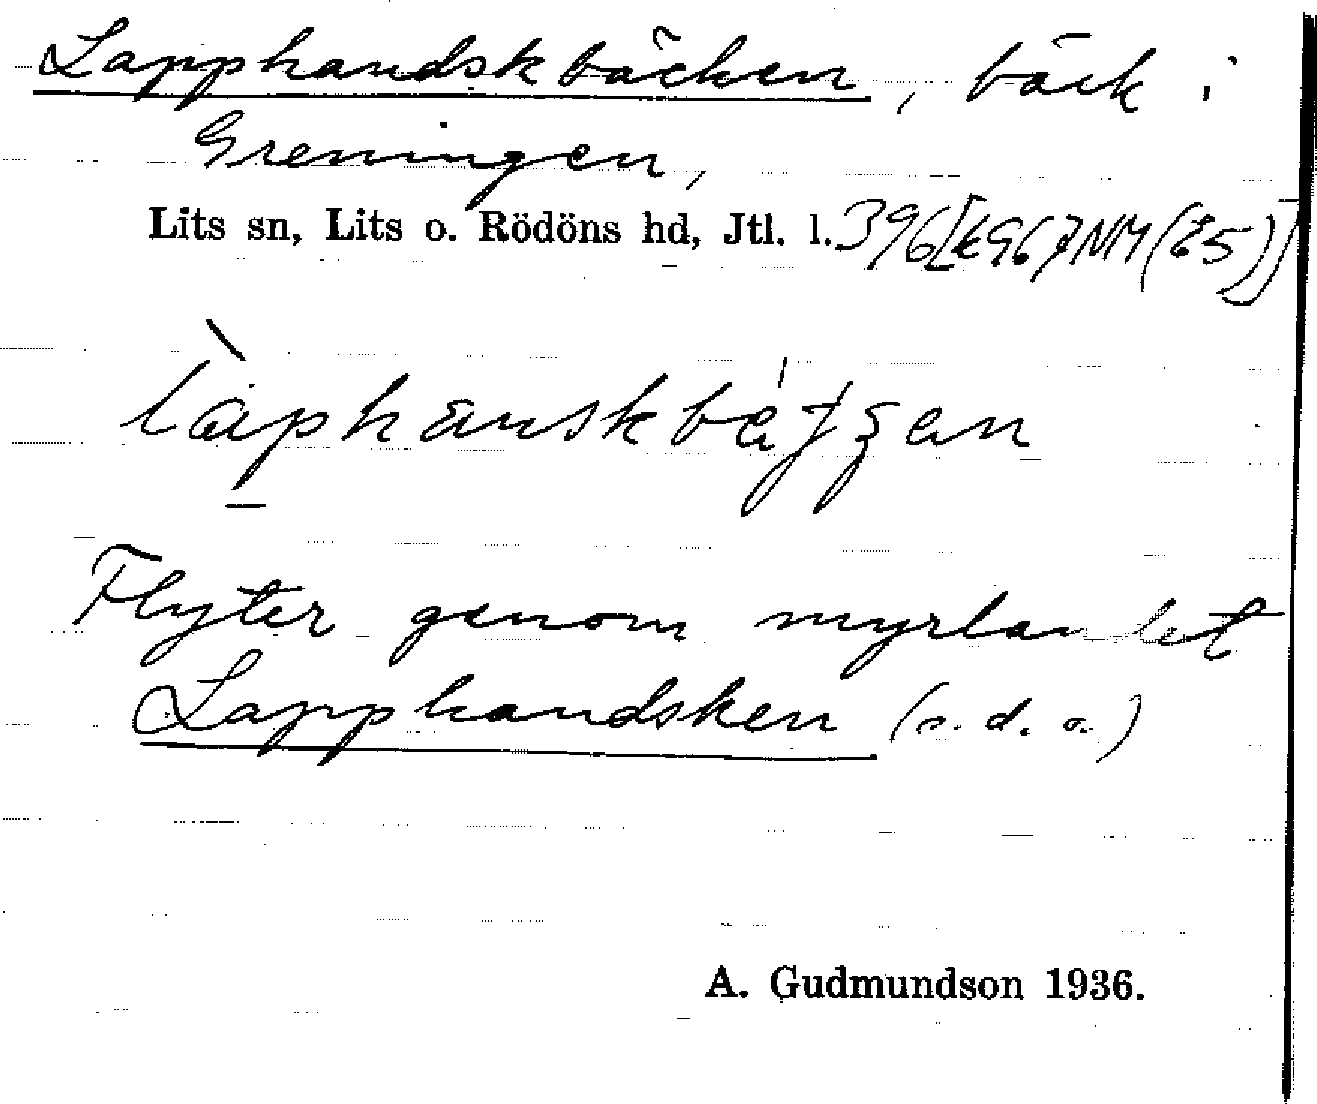 Lapphandskbäcken, bäck i
Greningen,
Lits sn, Lits o. Rödöns hd, Jtl. l.
Flyter genom myrlandet
Lapphandsken (s. d. o.)
A. Gudmundson 1936.